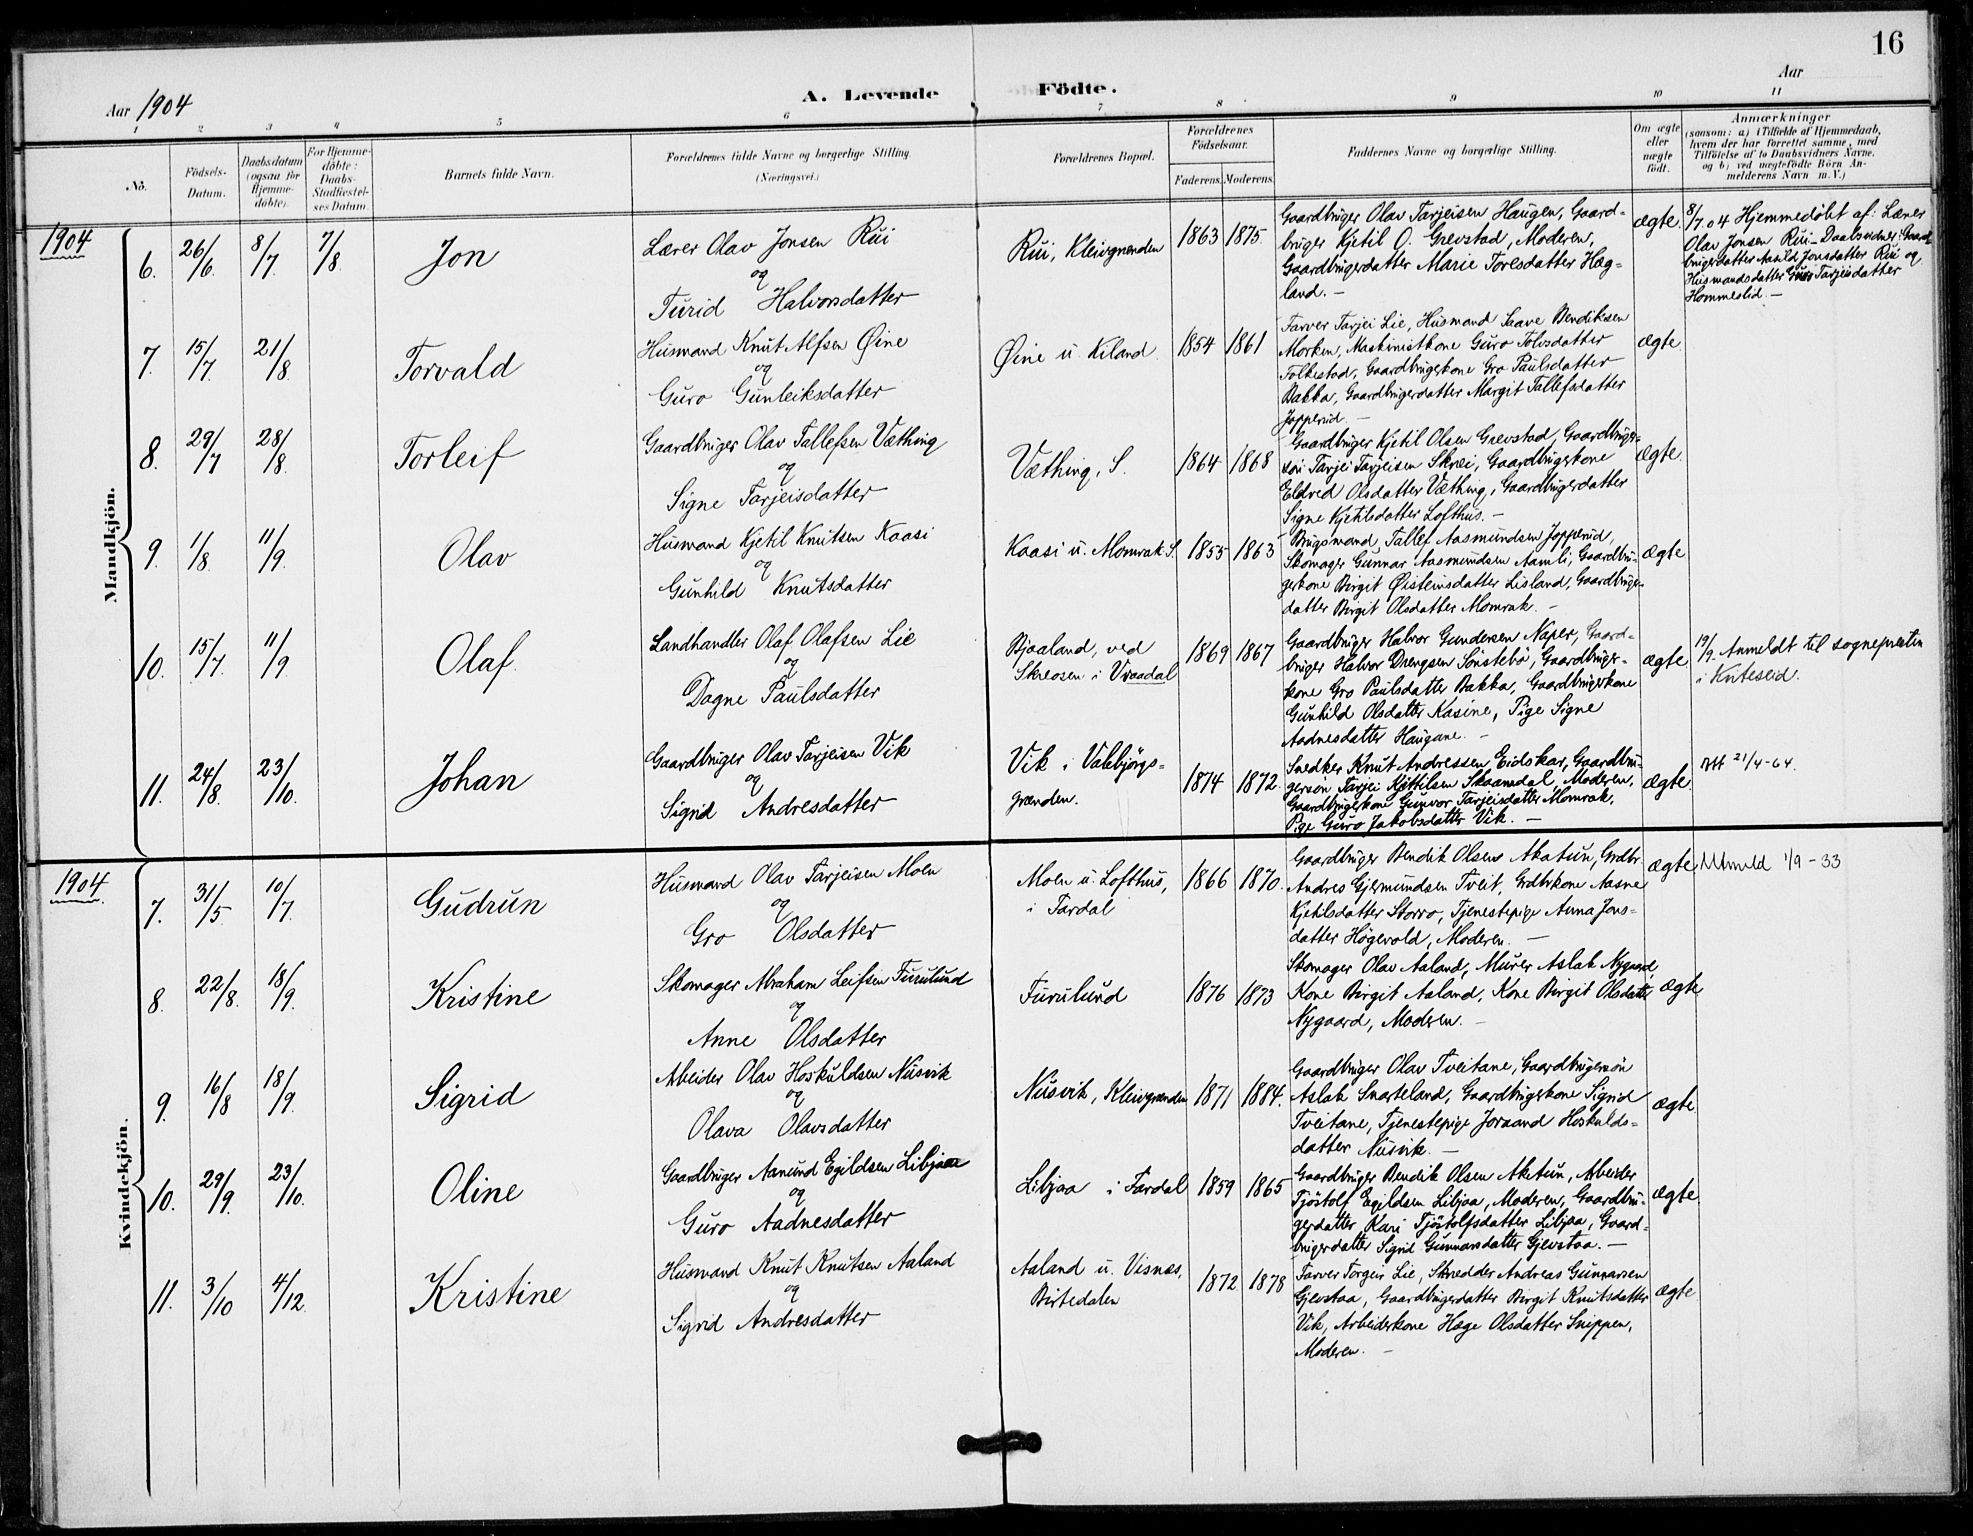 16
Aar 1904
A. Levende Födte.
Aar
1 2 3 4 5 6 7 8 9 10 11
No.
Födsels-
Datum.
Daabsdatum
(ogsaa for
Hjemme-
döbte).
For Hjemme-
döbte:
Daabs-
Stadfæstel-
ses Datum.
Barnets fulde Navn.
Forældrenes fulde Navne og borgerlige Stilling
(Næringsvei.)
Forældrenes Bopæl.
Forældrenes
Födselsaar.
Faderens. Moderens.
Faddernes Navne og borgerlige Stilling.
Om ægte
eller
uægte
födt.
Anmærkninger
(saasom: a) i Tilfælde af Hjemmedaab,
hvem der har forrettet samme, med
Tilföielse af to Daabsvidners Navne.
og b) ved uægtefödte Börn An-
melderens Navn m. V.)
1904
Mandkjön.
6. 26/6. 8/7. 7/8. Jon
Lærer Olav Jonsen Rui
og
Turid Halvorsdatter
Rui, Kleivgrenden
1863 1875.
Gaardbruger Olav Tarjeisen Haugen, Gaard-
bruger Kjetil O. Grevstad, Moderen,
Gaardbrugerdatter Marie Toresdatter Hæg-
land. –
ægte
8/7.04 Hjemmedöbt af: Lærer
Olav Jonsen Rui – Daabsvidner: Gaard-
brugerdatter Aasild Jonsdatter Rui og
Husmandsdatter Guro Tarjeisdatter
Hommeslid. –
7. 15/7. 21/8. Torvald
Husmand Knut Alfsen Øine
og
Guro Gunleiksdatter
Øine u. Kiland
1854 1861
Farver Tarjei Lie, Husmand Saave Bendiksen
Morken, Maskinistkone Guro Tolvsdatter
Folkestad, Gaardbrugerkone Gro Paulsdatter
Bakka, Gaardbrugerdatter Margit Tallefsdatter
Jopperud. –
ægte
8. 29/7 28/8. Torleif
Gaardbruger Olav Tallefsen Væthing
og
Signe Tarjeisdatter
Væthing, S.
1864 1868
Gaardbruger Kjetil Olsen Grevstad, Gaardbruger-
sön Tarjei Tarjeisen Skrei, Gaardbrugerkone
Eldred Olsdatter Væthing, Gaardbrugerdatter
Signe Kjetilsdatter Lofthus. –
ægte
9. 1/8. 11/9. Olav
Husmand Kjetil Knutsen Kaasi
og
Gunhild Knutsdatter
Kaasi u. Momrak. S.
1855 1863
Brugsmand Tallef Aasmundsen Jopperud,
Skomager Gunnar Aasmundsen Aamli, Gaardbru-
gerkone Birgit Øisteinsdatter Lisland, Gaardbruger-
datter Birgit Olsdatter Momrak. –
ægte
10. 15/7. 11/9. Olaf.
Landhandler Olaf Olafsen Lie
og
Dagne Paulsdatter
Bjaaland, ved
Skreosen i Vraadal
1869 1867
Gaardbruger Halvor Gundersen Naper, Gaard-
bruger Halvor Drengsen Sönstebö, Gaardbruger-
kone Gro Paulsdatter Bakka, Gaardbrugerkone
Gunhild Olsdatter Kasine, Pige Signe
Aadnesdatter Haugane. –
ægte
19/9. Anmeldt til sognepresten
i Kviteseid.
11. 24/8. 23/10. Johan
Gaardbruger Olav Tarjeisen Vik
og
Sigrid Andresdatter
Vik i Veumbjörgs-
grænden.
1874 1872.
Snedker Knut Andressen Eidskar, Gaardbru-
gersön Tarjei Kjettilsen Skaamdal, Moderen,
Gaardbrugerkone Gunvor Tarjeisdatter Momrak,
Pige Guro Jakobsdatter Vik. –
ægte
21/4-64.
1904
Kvindekjön.
7. 31/5. 10/7. Gudrun
Husmand Olav Tarjeisen Moen
og
Gro Olsdatter
Moen u. Lofthus,
i Fardal
1866 1870.
Gaardbruger Bendik Olsen Akatun, Grdbr.
Andres Gjermundsen Tveit, Grdbrkone Aasne
Kjetilsdatter Storro, Tjenestepige Anna Jons-
datter Högevold, Moderen. –
ægte
Utmeld 1/9-33
8. 22/8. 18/9. Kristine
Skomager Abraham Leifsen Furulund
og
Anne Olsdatter
Furulund
1876 1873
Skomager Olav Aaland, Murer Aslak Nygaard,
Kone Birgit Aaland, Kone Birgit Olsdatter
Nygaard, Moderen. –
ægte
9. 16/8 18/9. Sigrid
Arbeider Olav Hoskuldsen Nusvik
og
Olava Olavsdatter
Nusvik, Kleivgrenden
1871 1884.
Gaardbruger Olav Tveitane, Gaardbrugersön
Aslak Snarteland, Gaardbrugerkone Sigrid
Tveitane, Tjenestepige Joraand Hoskulds-
datter Nusvik. –
ægte
10. 29/9. 23/10. Oline
Gaardbruger Aanund Egildsen Libjaa
og
Guro Aadnesdatter
Libjaa i Fardal
1859 1865
Gaardbruger Bendik Olsen Akatun, Arbeider
Tjöstolf Egildsen Libjaa, Moderen, Gaardbru-
gerdatter Kari Tjöstolfsdatter Libjaa, Gaard-
brugerdatter Sigrid Gunnarsdatter Gjevstaa. –
ægte
11. 3/10 4/12. Kristine
Husmand Knut Knutsen Aaland
og
Sigrid Andresdatter
Aaland u. Visnæs,
Birtedalen
1872 1878
Farver Torgeir Lie, Skrædder Andreas Gunnarsen
Gjevstaa, Gaardbrugerdatter Birgit Knutsdatter
Vik, Arbeiderkone Hæge Olsdatter Snippen,
Moderen. –
ægte